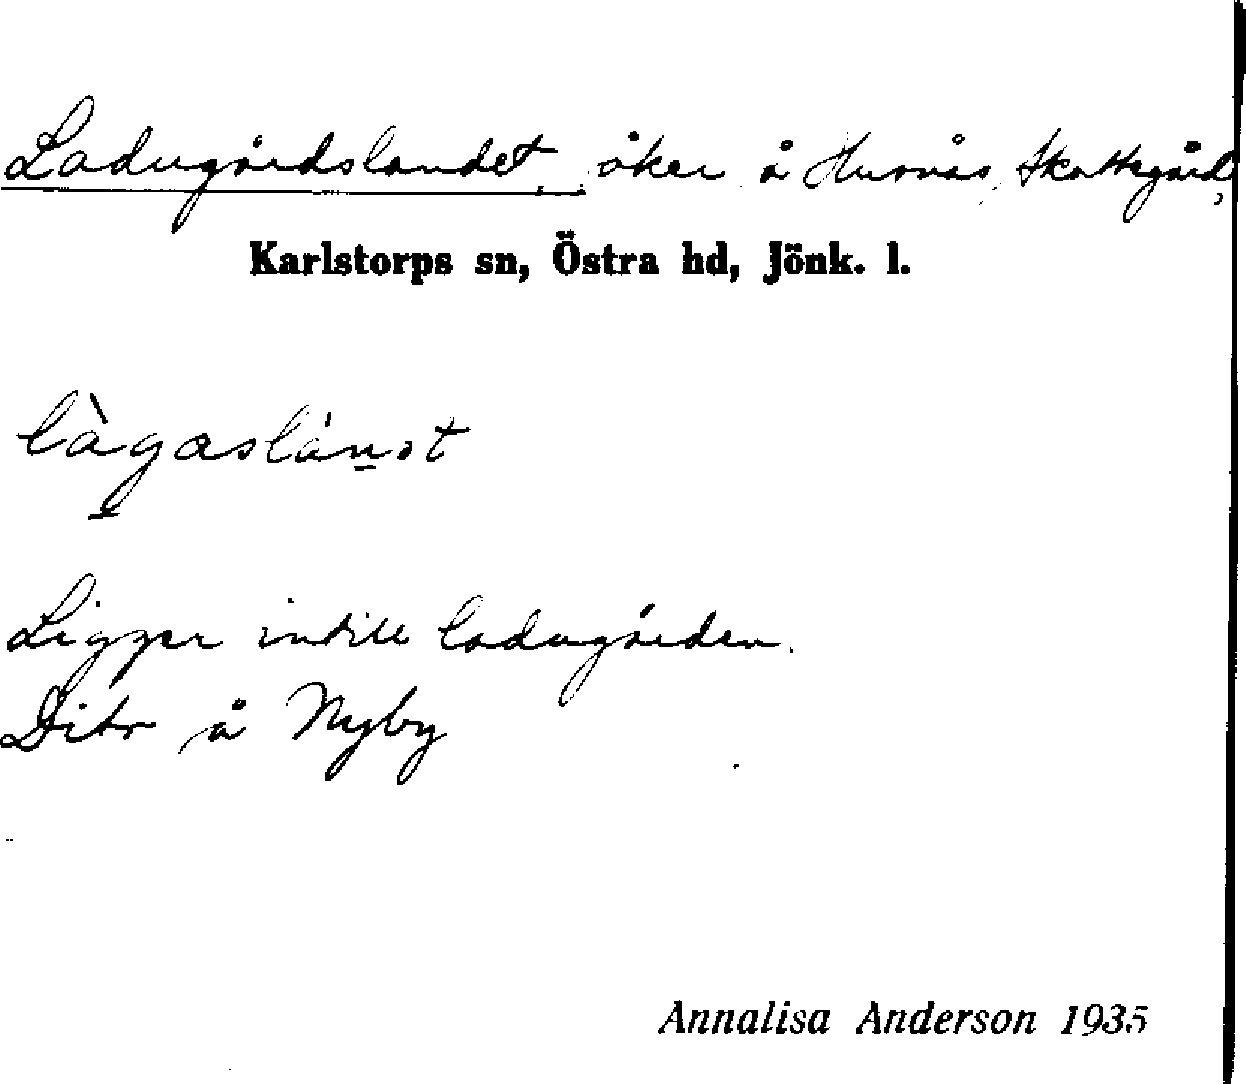 Ladugårdslandet, åker å Hursnäs, Skattegård,
Karlstorps sn, Östra hd, Jönk. l.
Ligger intill ladugården.
Dito å Nyby
Annalisa Anderson 1935